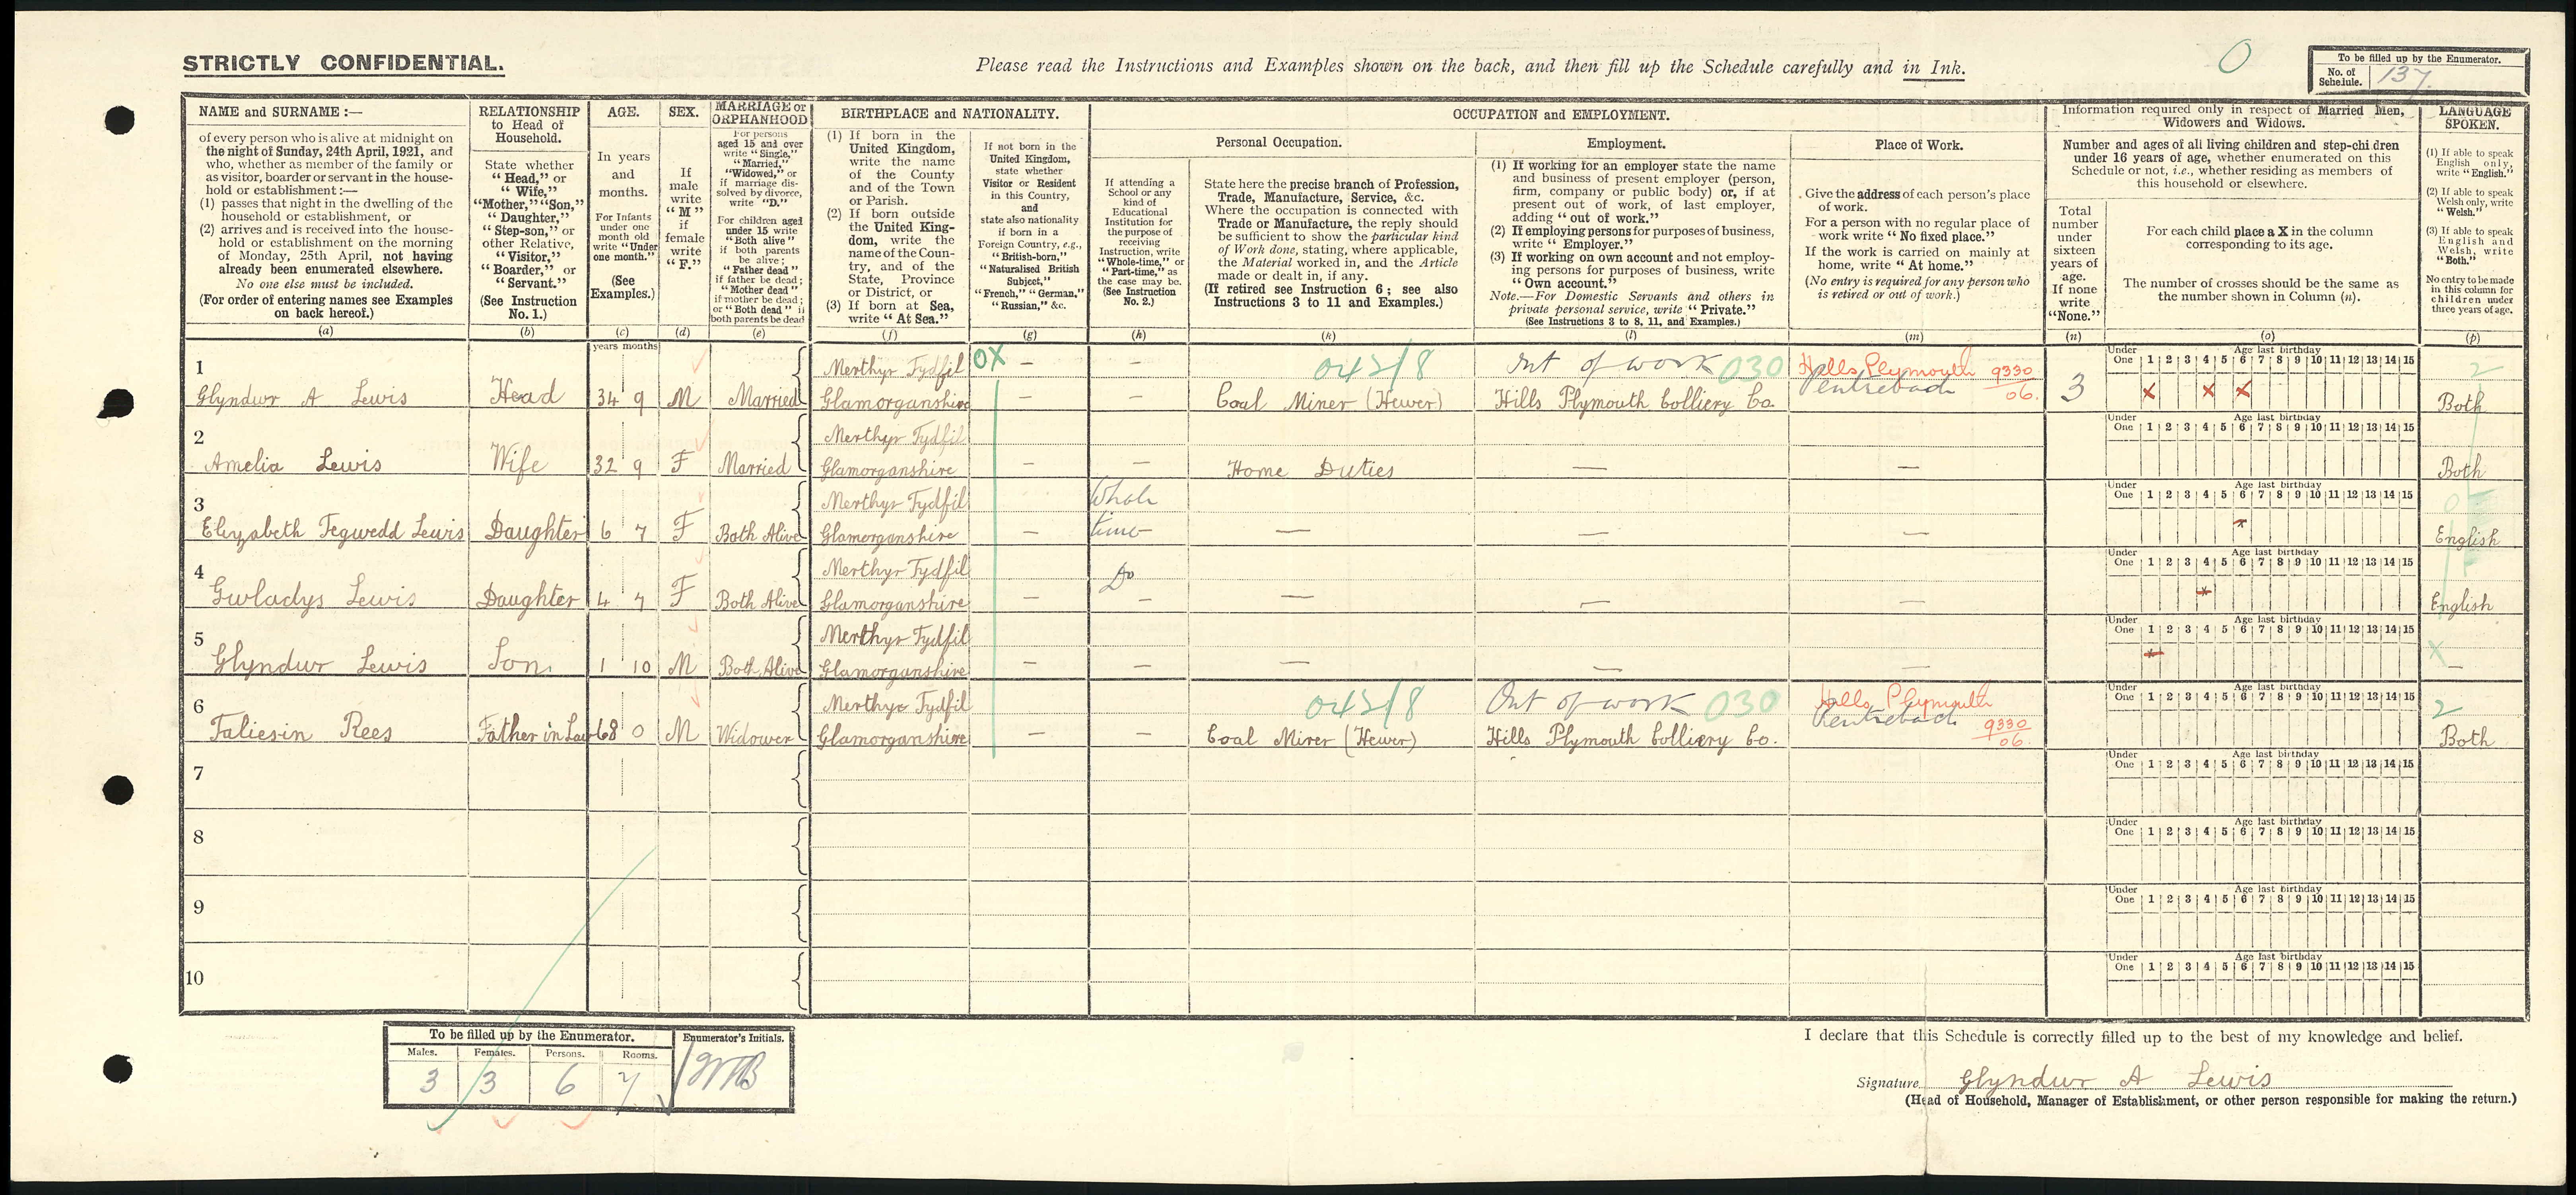 STRICTLY CONFIDENTIAL.
Please read the Instructions and Examples shown on the back, and then fill up the Schedule carefully and in Ink.
0
To be filled up by the Enumerator.
No. of Schedule. 137
NAME and SURNAME :—
of every person who is alive at midnight on
the night of Sunday, 24th April, 1921, and
who, whether as member of the family or
as visitor, boarder or servant in the house-
hold or establishment :—
(1) passes that night in the dwelling of the
household or establishment, or
(2) arrives and is received into the house-
hold or establishment on the morning
of Monday, 25th April, not having
already been enumerated elsewhere.
No one else must be included.
(For order of entering names see Examples
on back hereof.)
(a)
RELATIONSHIP
to Head of
Household.
State whether
"Head," or
"Wife,"
"Mother," "Son,"
"Daughter,"
"Step-son," or
other Relative,
"Visitor,"
"Boarder," or
"Servant."
(See Instruction
No. 1.)
(b)
AGE.
In years
and
months.
For Infants
under one
month old
write "Under
one month."
(See
Examples.)
(c)
SEX.
If
male
write
"M"
if
female
write
"F."
(d)
MARRIAGE or
ORPHANHOOD
For persons
aged 15 and over
write "Single,"
"Married,"
"Widowed," or
if marriage dis-
solved by divorce,
write "D."
For children aged
under 15 write
"Both alive"
if both parents
be alive;
"Father dead"
if father be dead;
"Mother dead"
if mother be dead;
or "Both dead" if
both parents be dead
(e)
BIRTHPLACE and NATIONALITY.
(1) If born in the
United Kingdom,
write the name
of the County
and of the Town
or Parish.
(2) If born outside
the United King-
dom, write the
name of the Coun-
try, and of the
State, Province
or District, or
(3) If born at Sea,
write "At Sea."
(f)
If not born in the
United Kingdom,
state whether
Visitor or Resident
in this Country,
and
state also nationality
if born in a
Foreign Country, e.g.,
"British-born,"
"Naturalised British
Subject,"
"French," "German,"
"Russian," &c.
(g)
OCCUPATION and EMPLOYMENT.
Personal Occupation.
If attending a
School or any
kind of
Educational
Institution for
the purpose of
receiving
Instruction, write
"Whole-time," or
"Part-time," as
the case may be.
(See Instruction
No. 2.)
(h)
State here the precise branch of Profession,
Trade, Manufacture, Service, &c.
Where the occupation is connected with
Trade or Manufacture, the reply should
be sufficient to show the particular kind
of Work done, stating, where applicable,
the Material worked in, and the Article
made or dealt in, if any.
(If retired see Instruction 6; see also
Instructions 3 to 11 and Examples.)
(k)
Employment.
(1) If working for an employer state the name
and business of present employer (person,
firm, company or public body) or, if at
present out of work, of last employer,
adding "out of work."
(2) If employing persons for purposes of business,
write "Employer."
(3) If working on own account and not employ-
ing persons for purposes of business, write
"Own account."
Note.—For Domestic Servants and others in
private personal service, write "Private."
(See Instructions 3 to 8, 11, and Examples.)
(l)
Place of Work.
Give the address of each person's place
of work.
For a person with no regular place of
work write "No fixed place."
If the work is carried on mainly at
home, write "At home."
(No entry is required for any person who
is retired or out of work.)
(m)
Information required only in respect of Married Men,
Widowers and Widows.
Number and ages of all living children and step-children
under 16 years of age, whether enumerated on this
Schedule or not, i.e., whether residing as members of
this household or elsewhere.
Total
number
under
sixteen
years of
age.
If none
write
"None."
(n)
For each child place a X in the column
corresponding to its age.
The number of crosses should be the same as
the number shown in Column (n).
(o)
LANGUAGE
SPOKEN.
(1) If able to speak
English only,
write "English."
(2) If able to speak
Welsh only, write
"Welsh."
(3) If able to speak
English and
Welsh, write
"Both."
No entry to be made
in this column for
children under
three years of age.
(p)
years months
1 Merthyr Tydfil OX — — 042/8 Out of work 030 Hills Plymouth 9330/06. Under One 1 2 3 4 5 6 7 8 9 10 11 12 13 14 15 Age last birthday 2
Glyndwr A Lewis Head 34 9 M Married Glamorganshire — — Coal Miner (Hewer) Hills Plymouth Colliery Co. Pentrebach 3 X X X Both
2 Merthyr Tydfil Under One 1 2 3 4 5 6 7 8 9 10 11 12 13 14 15 Age last birthday
Amelia Lewis Wife 32 9 F Married Glamorganshire — — Home Duties — — Both
3 Merthyr Tydfil Whole Under One 1 2 3 4 5 6 7 8 9 10 11 12 13 14 15 Age last birthday
Elizabeth Tegwedd Lewis Daughter 6 7 F Both Alive Glamorganshire — time — — — x English
4 Merthyr Tydfil Do Under One 1 2 3 4 5 6 7 8 9 10 11 12 13 14 15 Age last birthday
Gwladys Lewis Daughter 4 7 F Both Alive Glamorganshire — — — — — x English
5 Merthyr Tydfil Under One 1 2 3 4 5 6 7 8 9 10 11 12 13 14 15 Age last birthday X
Glyndwr Lewis Son 1 10 M Both Alive Glamorganshire — — — — — x —
6 Merthyr Tydfil 042/8 Out of work 030 Hills Plymouth Under One 1 2 3 4 5 6 7 8 9 10 11 12 13 14 15 Age last birthday 2
Taliesin Rees Father in Law 68 0 M Widower Glamorganshire — — Coal Miner (Hewer) Hills Plymouth Colliery Co. Pentrebach 9330/06. Both
7 Under One 1 2 3 4 5 6 7 8 9 10 11 12 13 14 15 Age last birthday
8 Under One 1 2 3 4 5 6 7 8 9 10 11 12 13 14 15 Age last birthday
9 Under One 1 2 3 4 5 6 7 8 9 10 11 12 13 14 15 Age last birthday
10 Under One 1 2 3 4 5 6 7 8 9 10 11 12 13 14 15 Age last birthday
To be filled up by the Enumerator. Enumerator's Initials.
Males. Females. Persons. Rooms.
3 3 6 7
I declare that this Schedule is correctly filled up to the best of my knowledge and belief.
Signature Glyndwr A Lewis
(Head of Household, Manager of Establishment, or other person responsible for making the return.)